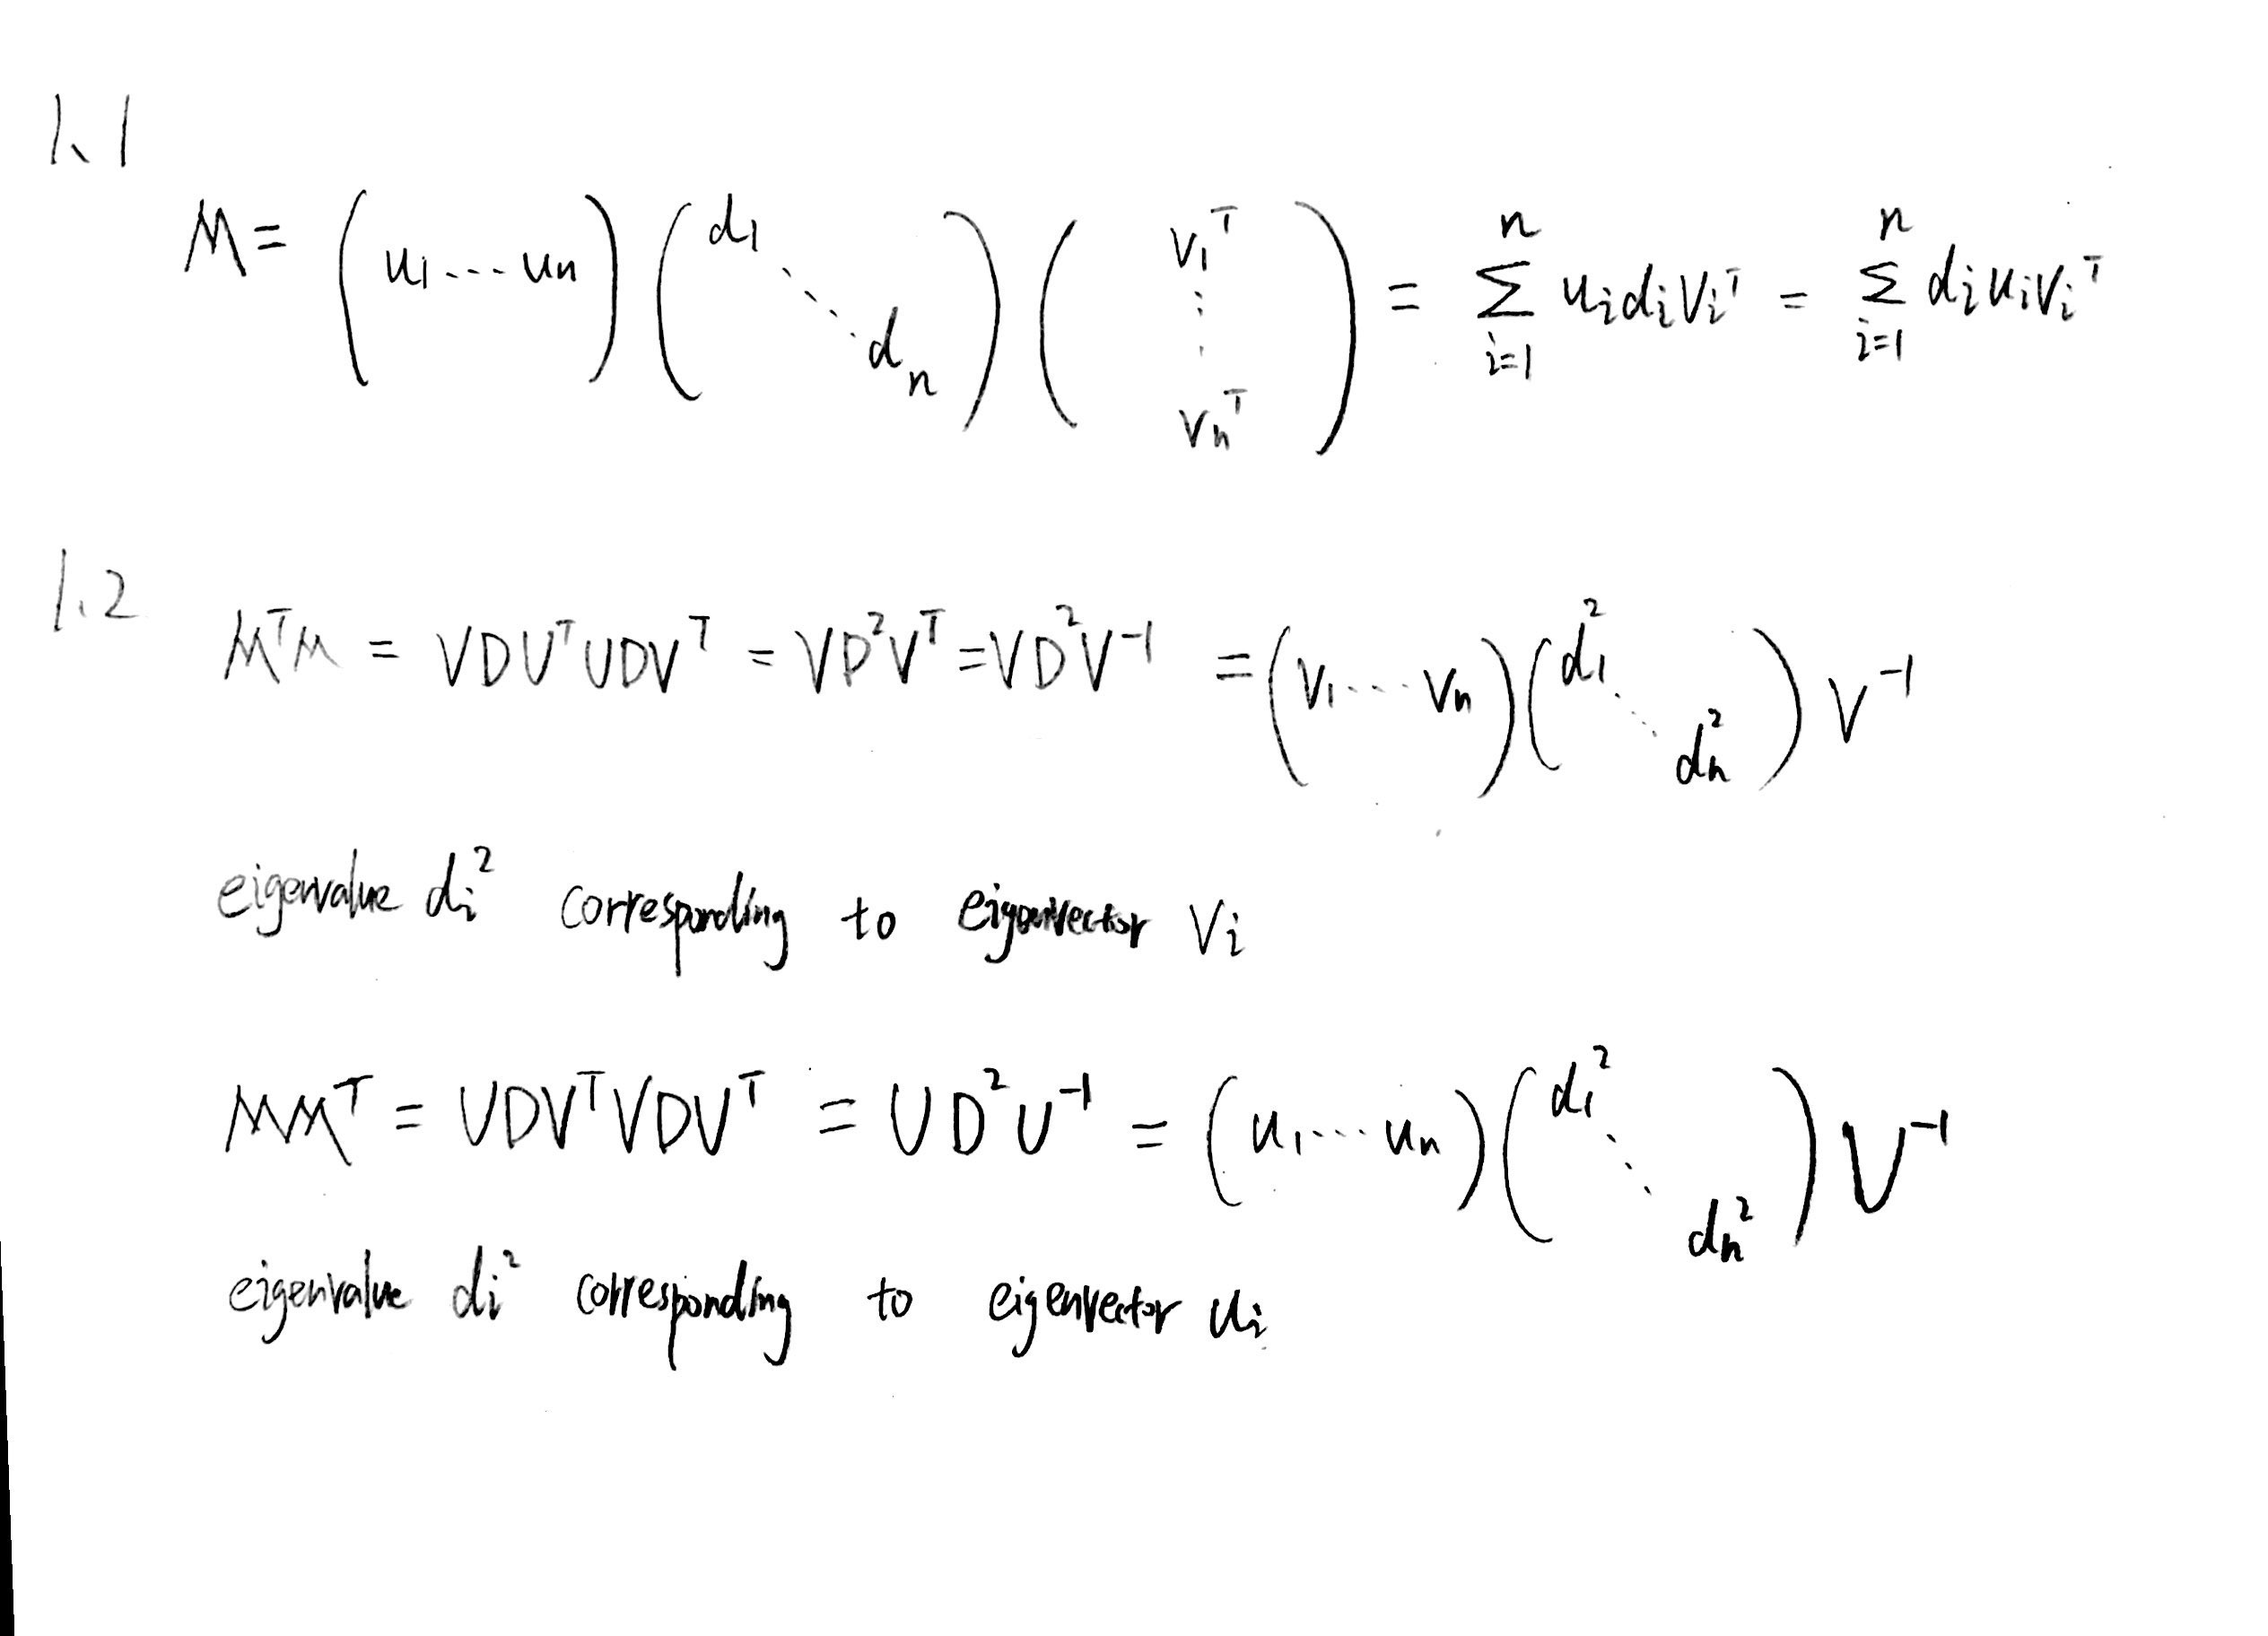 1.1
M = (u₁ ... uₙ) (d₁ ⋱ dₙ) (v₁ᵀ ⋮ vₙᵀ) = Σᵢ₌₁ⁿ uᵢdᵢvᵢᵀ = Σᵢ₌₁ⁿ dᵢuᵢvᵢᵀ
1.2
MᵀM = VDUᵀUDVᵀ = VD²Vᵀ = VD²V⁻¹ = (v₁ ... vₙ) (d₁² ⋱ dₙ²) V⁻¹
eigenvalue dᵢ² corresponding to eigenvector vᵢ
MMᵀ = UDVᵀVDVᵀ = UD²U⁻¹ = (u₁ ... uₙ) (d₁² ⋱ dₙ²) U⁻¹
eigenvalue dᵢ² corresponding to eigenvector uᵢ